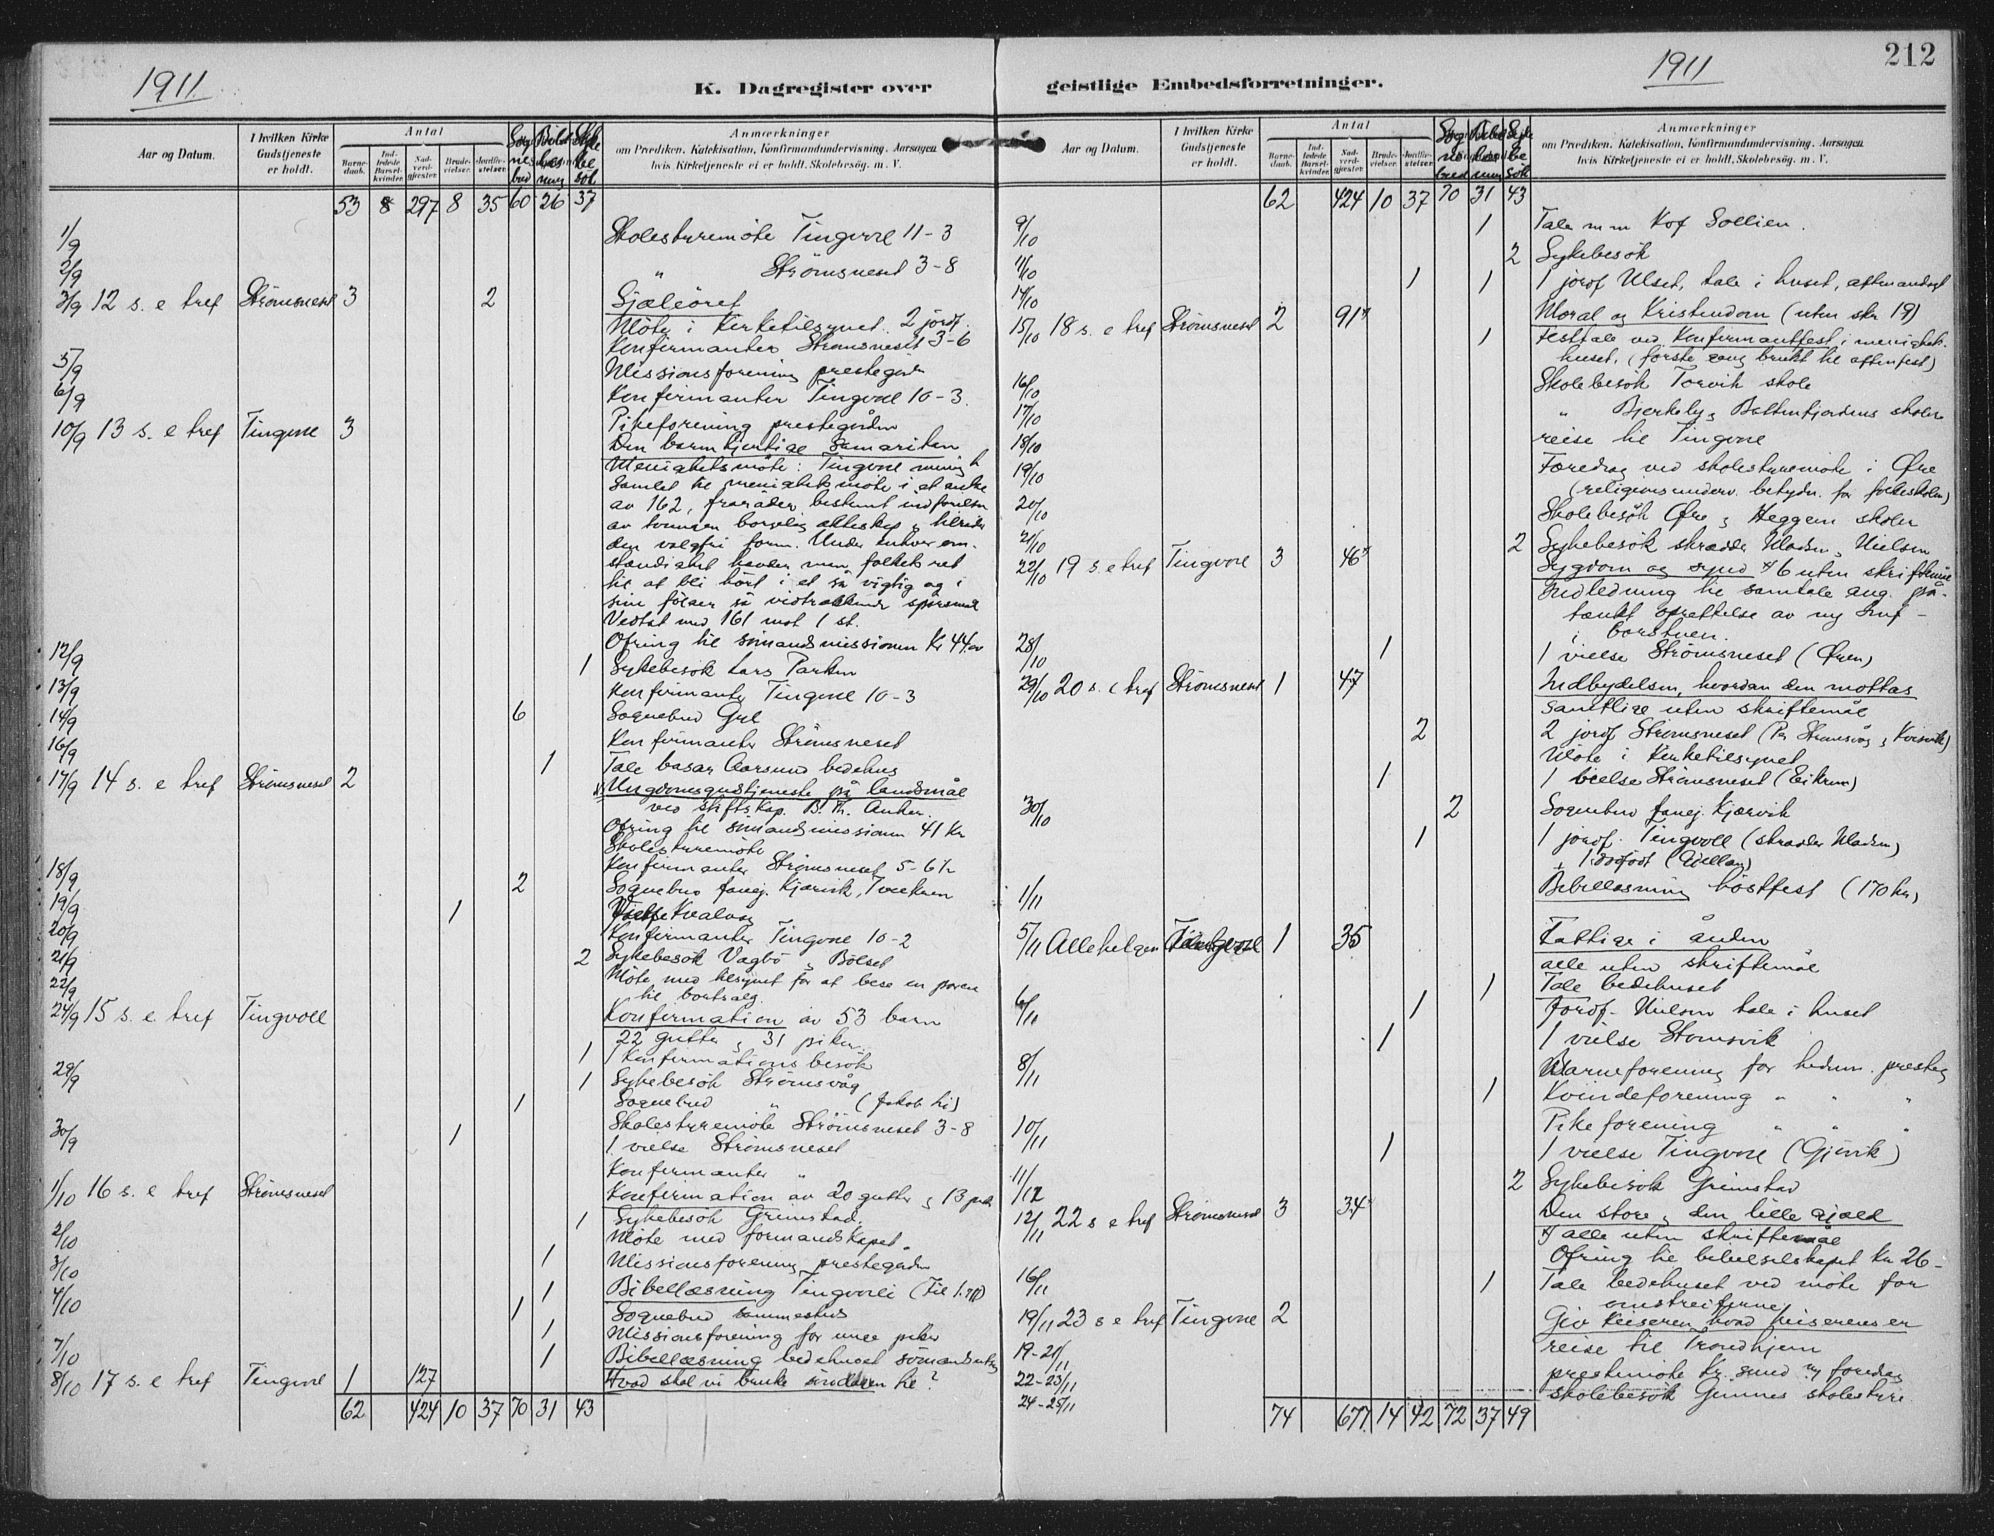 1911
K. Dagregister over
Aar og Datum.
I hvilken Kirke Gudstjeneste er holdt.
Antal
Barnedaab.
Indledede Barselkvinder.
Nadverdgjester.
Brudevielser.
Jordfæstelser.
Sognebud
Sykebesøk
Anmærkninger
om Prædiken, Katekisation, Konfirmandundervisning. Aarsagen
hvis Kirketjeneste ei er holdt. Skolebesøg. m. V.
53 8 297 8 35 60 26 37
1/9 Skolestyremöte Tingvoll 11-3
2/9 " Strömsneset 3-8
3/9 12 s. e tref Strömsneset 3 2 Sjæleöret
Möte i Kirketilsynet. 2 jordf.
Konfirmanter Strömsneset 3-6
5/9 Missionsforening prestegården
6/9 Konfirmanter Tingvoll 10-3.
Pikeforening prestegården
10/9 13 s. e tref Tingvoll 3 Den barmhjertige samaritan
Menighetsmöte: Tingvoll menigh
samlet til menighetsmöte i et antal
av 162, fraråder bestemt indförelse
av tvungen borgerlig ekteskap &
den valgfri form. Under enhver om-
stændighet hævder men folkets ret
til at bli hört i et så vigtig og i
sine fölger så vidtrækkende spörsmål
Vedtat med 161 mot 1 st.
Ofring til sömandsmissionen Kr 44
12/9 1 Sykebesök Lars Parken
13/9 Konfirmanter Tingvoll 10-3
14/9 6 Sognebud Gyl
16/9 Konfirmanter Strömsneset
1 Tale basar Aarsund bedehus
17/9 14 s. e tref Strömsneset 2 Ungdomsgudstjeneste på landsmål
ved stiftskap. B. Th. Anker.
Ofring til sömandsmissionen 41 Kr
Skolestyremöte
18/9 Konfirmanter Strömsneset 5-6½
2 Sognebud Kjærvik,
19/9 1 Vielse Kvalvåg
20/9 Konfirmanter Tingvoll 10-2
21/9 2 Sykebesök Vagbö, Bölset
22/9 Möte med tilsynet for at bese en
til bortsalg.
24/9 15 s. e tref Tingvoll Konfirmation av 53 barn
22 gutter & 31 piker.
1 1 Konfirmations besök
29/9 1 Sykebesök Strömsvåg
1 Sognebud " (Jakob Li)
Skolestyremöte Strömsneset 3-8
30/9 1 1 vielse Strömsneset
Konfirmanter "
1/10 16 s. e tref Strömsneset Konfirmation av 20 gutter & 13 pik
1 Sykebesök Grimstad.
2/10 Möte med formandskapet
3/10 1 Missionsforening prestegården
4/10 1 Bibellæsning Tingvoll
1 Sognebud sammesteds
1 Missionsforening for unge piker
7/10 1 Bibellæsning bedehuset
8/10 17 s. e tref Tingvoll 1 127 Hvad skal vi bruke söndagen til?
62 424 10 37 70 31 43
212
1911
geistlige Embedsforretninger.
Aar og Datum.
I hvilken Kirke Gudstjeneste er holdt.
Antal
Barnedaab.
Indledede Barselkvinder.
Nadverdgjester.
Brudevielser.
Jordfæstelser.
Sykebesök
Anmærkninger
om Prædiken, Katekisation, Konfirmandundervisning. Aarsagen
hvis Kirketjeneste ei er holdt. Skolebesøg. m. V.
62 424 10 37 70 31 43
9/10 1 Tale m m Kof Sollien.
11/10 2 Sykebesök
14/10 1 1 1 jordf Ulset, tale i huset, aftenandagt
15/10 18 s. e tref Strömsneset 2 91 Moral og Kristendom (uten skr 19)
1 Festtale ved Konfirmantfest i menighets-
huset. (förste gang brukt til aftenfest)
16/10 Skolebesök Torvik skole
17/10 " Bjerkely & Battenfjordens skoler
18/10 reise til Tingvoll
19/10 Foredrag ved skolestyremöte i Øre
(religionsunderv. betydn. for folkeskolen)
20/10 Skolebesök Øre & Heggem skoler
21/10 2 Sykebesök skrædder Madsen, Nielsen
22/10 19 s. e tref Tingvoll 3 46 Sygdom og synd 6 uten skriftemål
Indledning til samtale ang. på-
tænkt oprettelse av ny
28/10 1 1 vielse Strömsneset (Øren)
29/10 20 s. e tref Strömsneset 1 47 Indbydelsen, hvordan den mottas
samtlige uten skriftemål
2 2 jordf Strömsneset (Per Strömsvåg & Kvisvik)
Möte i Kirketilsynet
1 1 vielse Strömsneset (Eikrem)
30/10 2 Sognebud Kjærvik
1 1 jordf. Tingvoll (skrædder Madsen)
1
1/11 Bibellæsning höstfest (170 kr)
5/11 Allehelgen Tingvoll 1 35 Fattige i ånden
alle uten skriftemål
1 Tale bedehuset
6/11 1 Jordf. Nielsen tale i huset
1 1 vielse Stomsvik
8/11 Barneforening for hedn. presteg
1 Kvindeforening " " "
Pikeforening " " "
10/11 1 1 vielse Tingvoll (Gjörvik)
11/11 2 Sykebesök Grimstad
12/11 22 s e tref Strömsneset 3 34 Den store & den lille gjæld
4 alle uten skriftemål
Ofring til bibelselskapet kr 26 -
16/11 1 Tale bedehuset ved möte for
omstreiferne
19/11 23 s e tref Tingvoll 2 Giv Keiseren hvad Keiserens er
19-21/11 reise til Trondhjem
22-23/11 prestemöte Kr.sund m/ foredrag
24-25/11 skolebesök Gimnes skolestyre
74 677 14 42 72 37 49